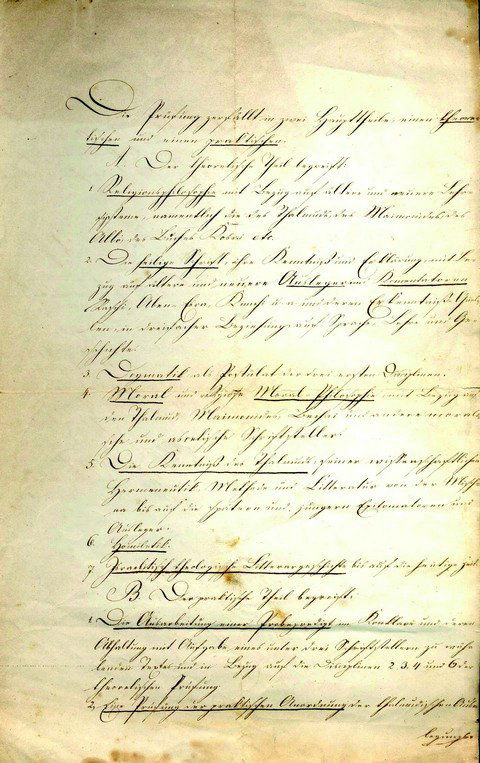 Die Prüfung zerfällt in zwei Haupttheile, einen theore-
tischen und einen praktischen.
A. Der theoretische Theil begreift:
1. Religionsphilosophie mit Bezug auf ältere und neuere Lehr-
systeme, namentlich die des Thalmuds, des Maimonides, des
Albo, des Buches Kosri etc.
2. Die heilige Schrift, ihre Kenntniß und Erklärung, mit Be-
zug auf ältere und neuere Ausleger und Komentatoren
Raschi, Aben Esra, Kimchi u. a. und deren
in dreifacher Beziehung auf Sprache, Lehre und Ge-
schichte.
3. Dogmatik als Postulat der drei ersten Disciplinen.
4. Moral und religiöse Moral-Philosophie mit Bezug auf
den Thalmud, Maimonides, Bechai und andere morali-
sche und ascetische Schriftsteller.
5. Die Kenntniß des Thalmuds, seiner wissenschaftlichen
Hermeneutik, Methode und Litteratur von der Misch-
na bis auf die spätern und jüngern und
Ausleger.
6. Homiletik.
7. Israelitisch theologische Litterargeschichte bis auf die heutige Zeit.
B. Der praktische Theil begreift:
1. Die Ausarbeitung einer Probepredigt im Konklave und deren
Abhaltung mit Aufgabe eines unter drei Schriftstellern zu wäh-
lenden Textes und in Bezug auf die Disciplinen 2, 3, 4 und 6 der
theoretischen Prüfung
2. Eine Prüfung der praktischen Anordnung der thalmudischen